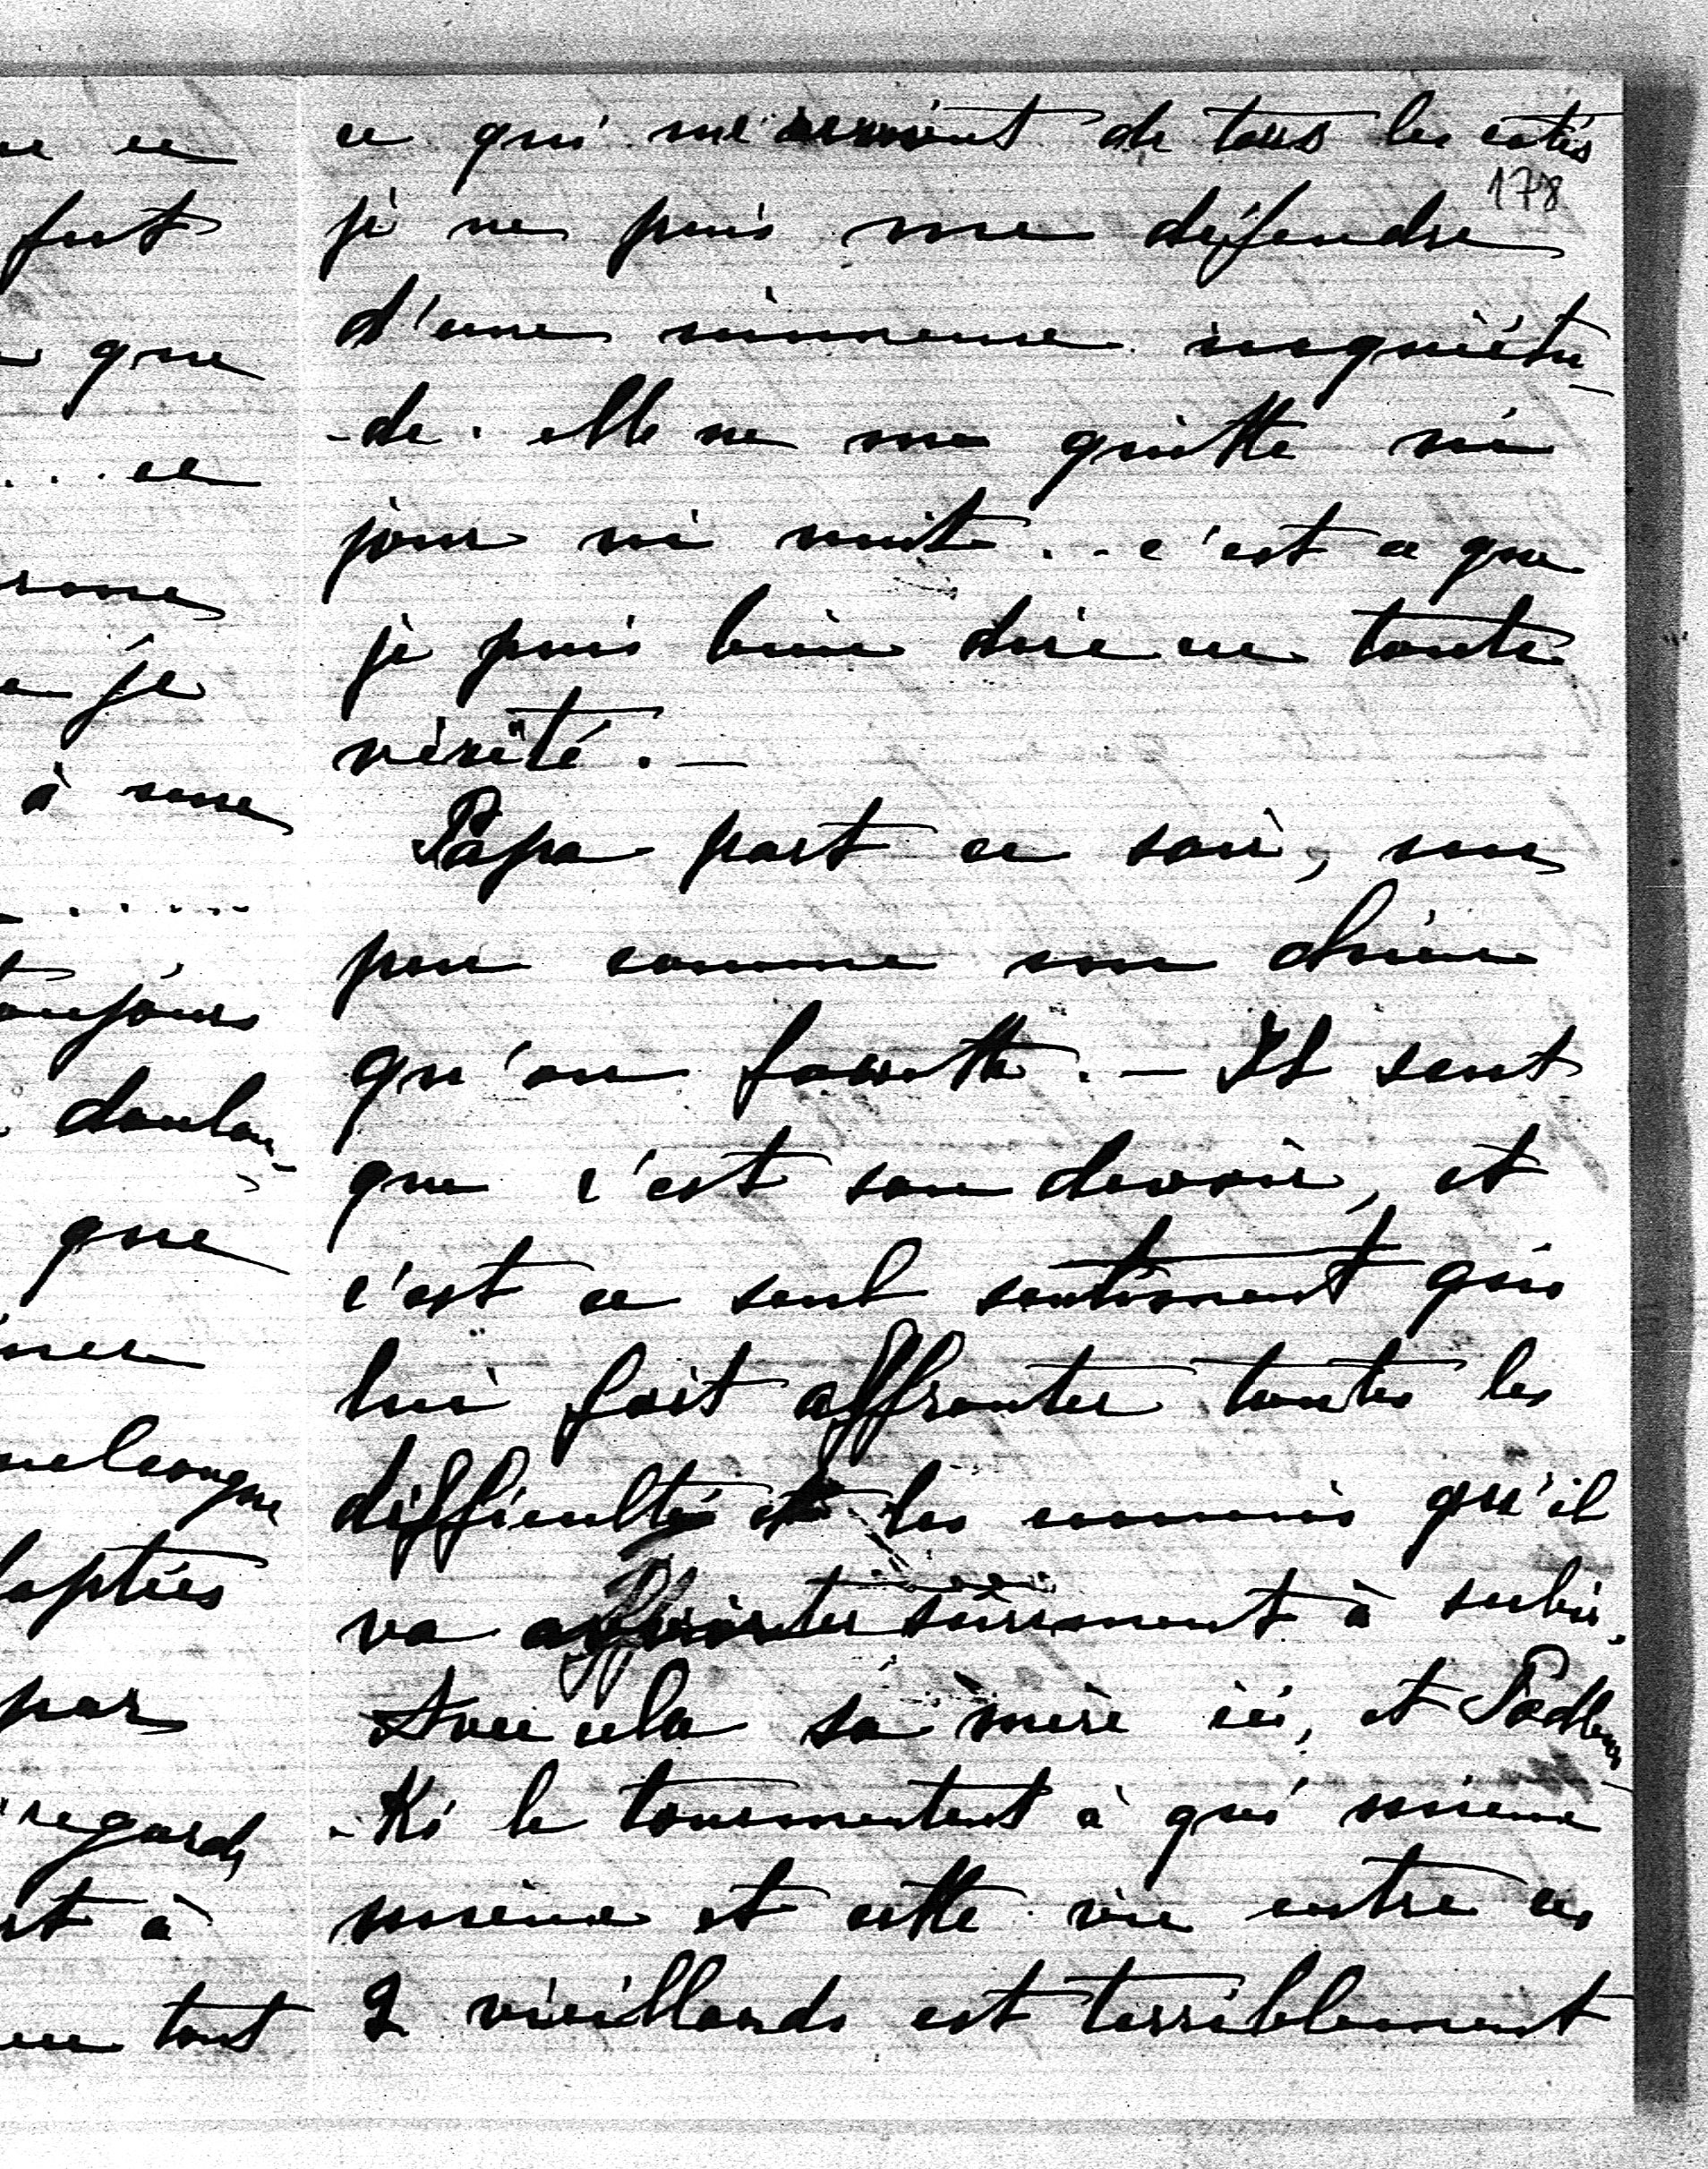 ce qui me revient de tous les cotés
178
je ne puis me défendre
d'une immense inquiétu
-de. elle ne me quitte ni
jour ni nuit... c'est ce que
je puis bien dire en toute
vérité. —
Papa part ce soir, un
peu comme un chien
qu'on fouette. — Il sent
que c'est son devoir, et
c'est ce seul sentiment qui
lui fait affronter toutes les
difficultés et les ennuis qu'il
va sûrement à subir.
Avec cela sa mère ici, et Podlew
-ski le tourmentent à qui mieux
mieux et cette vie entre ces
2 vieillards est terriblement
ce
fut
que
... ce
je
à une
.....
toujours
doulou-
que
quelconque
par
regards
et à
en tout